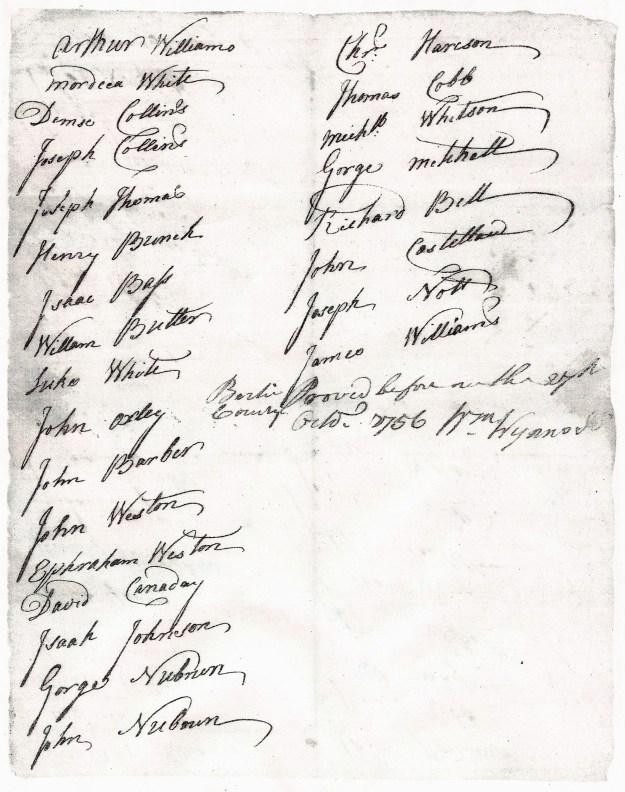 Arthur Williams
Mordeca White
Demse Collins
Joseph Collins
Joseph Thomas
Henry Bunch
Isaac Bass
Willam Butler
Luke White
John oxley
John Barber
John Weston
Ephraham Weston
David Canaday
Isaah Johnson
Gorge Nuburn
John Nuboun
Chrr. Harrson
Thomas Cobb
Michll Whitson
Gorge Mitchell
Richard Bell
John Castellaw
Joseph Nott
James Williams
Bertie County
Provid before me the 27th
Octor. 1756 Wm Wynns